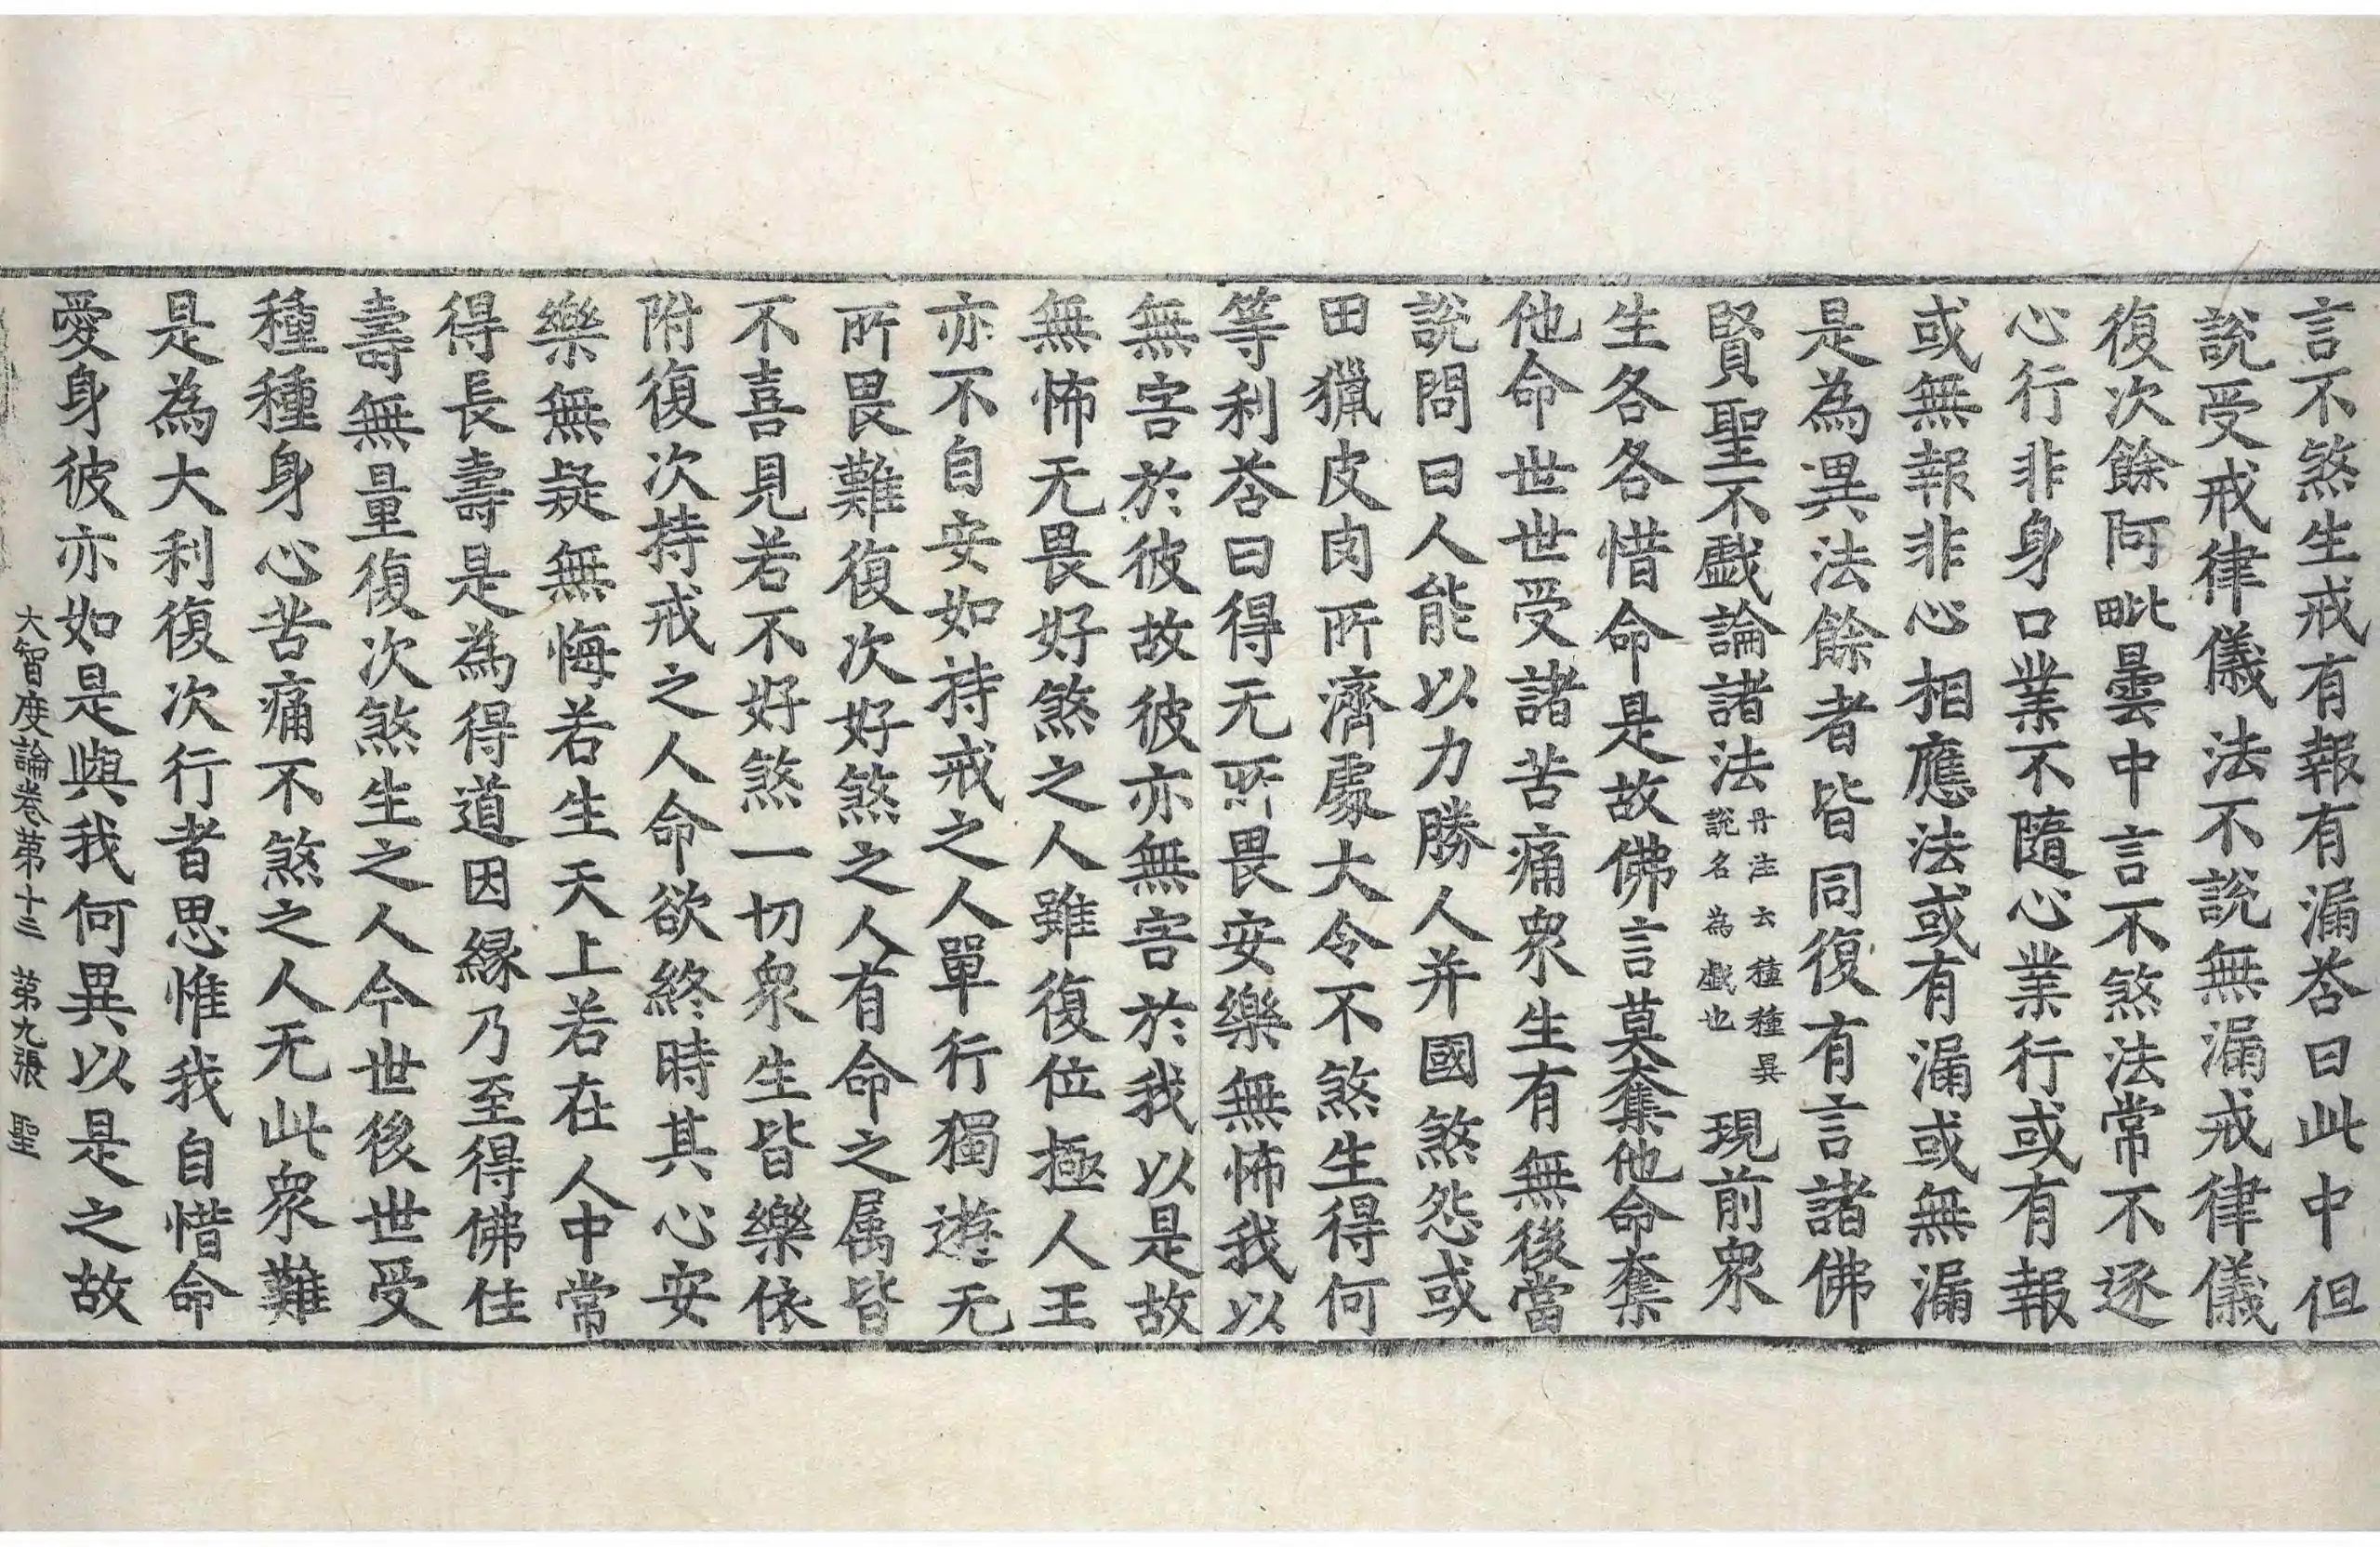 言不煞生戒有報有漏荅曰此中但
說受戒律儀法不說無漏戒律儀
復次餘阿毗曇中言不煞法常不逐
心行非身口業不隨心業行或有報
或無報非心相應法或有漏或無漏
是為異法餘者皆同復有言諸佛
賢聖不戲論諸法丹注云種種異說名為戲也現前衆
生各各惜命是故佛言莫奪他命奪
他命世世受諸苦痛衆生有無後當
說問曰人能以力勝人并國煞怨或
田獵皮肉所濟處大令不煞生得何
等利荅曰得无所畏安樂無怖我以
無害於彼故彼亦無害於我以是故
無怖无畏好煞之人雖復位極人王
亦不自安如持戒之人單行獨遊无
所畏難復次好煞之人有命之属皆
不喜見若不好煞一切衆生皆樂依
附復次持戒之人命欲終時其心安
樂無疑無悔若生天上若在人中常
得長壽是為得道因緣乃至得佛住
壽無量復次煞生之人今世後世受
種種身心苦痛不煞之人无此衆難
是為大利復次行者思惟我自惜命
愛身彼亦如是與我何異以是之故
大智度論卷第十三 第九張 聖